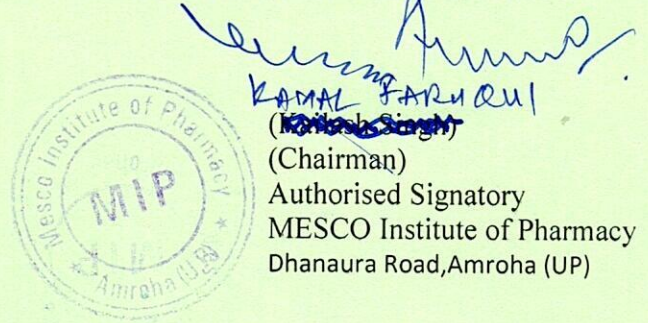 KAMAL FARUQUI
(Kailash Singh)
(Chairman)
Authorised Signatory
MESCO Institute of Pharmacy
Dhanaura Road,Amroha (UP)
Mesco Institute of Pharmacy
MIP
★ Amroha (U.P.) ★